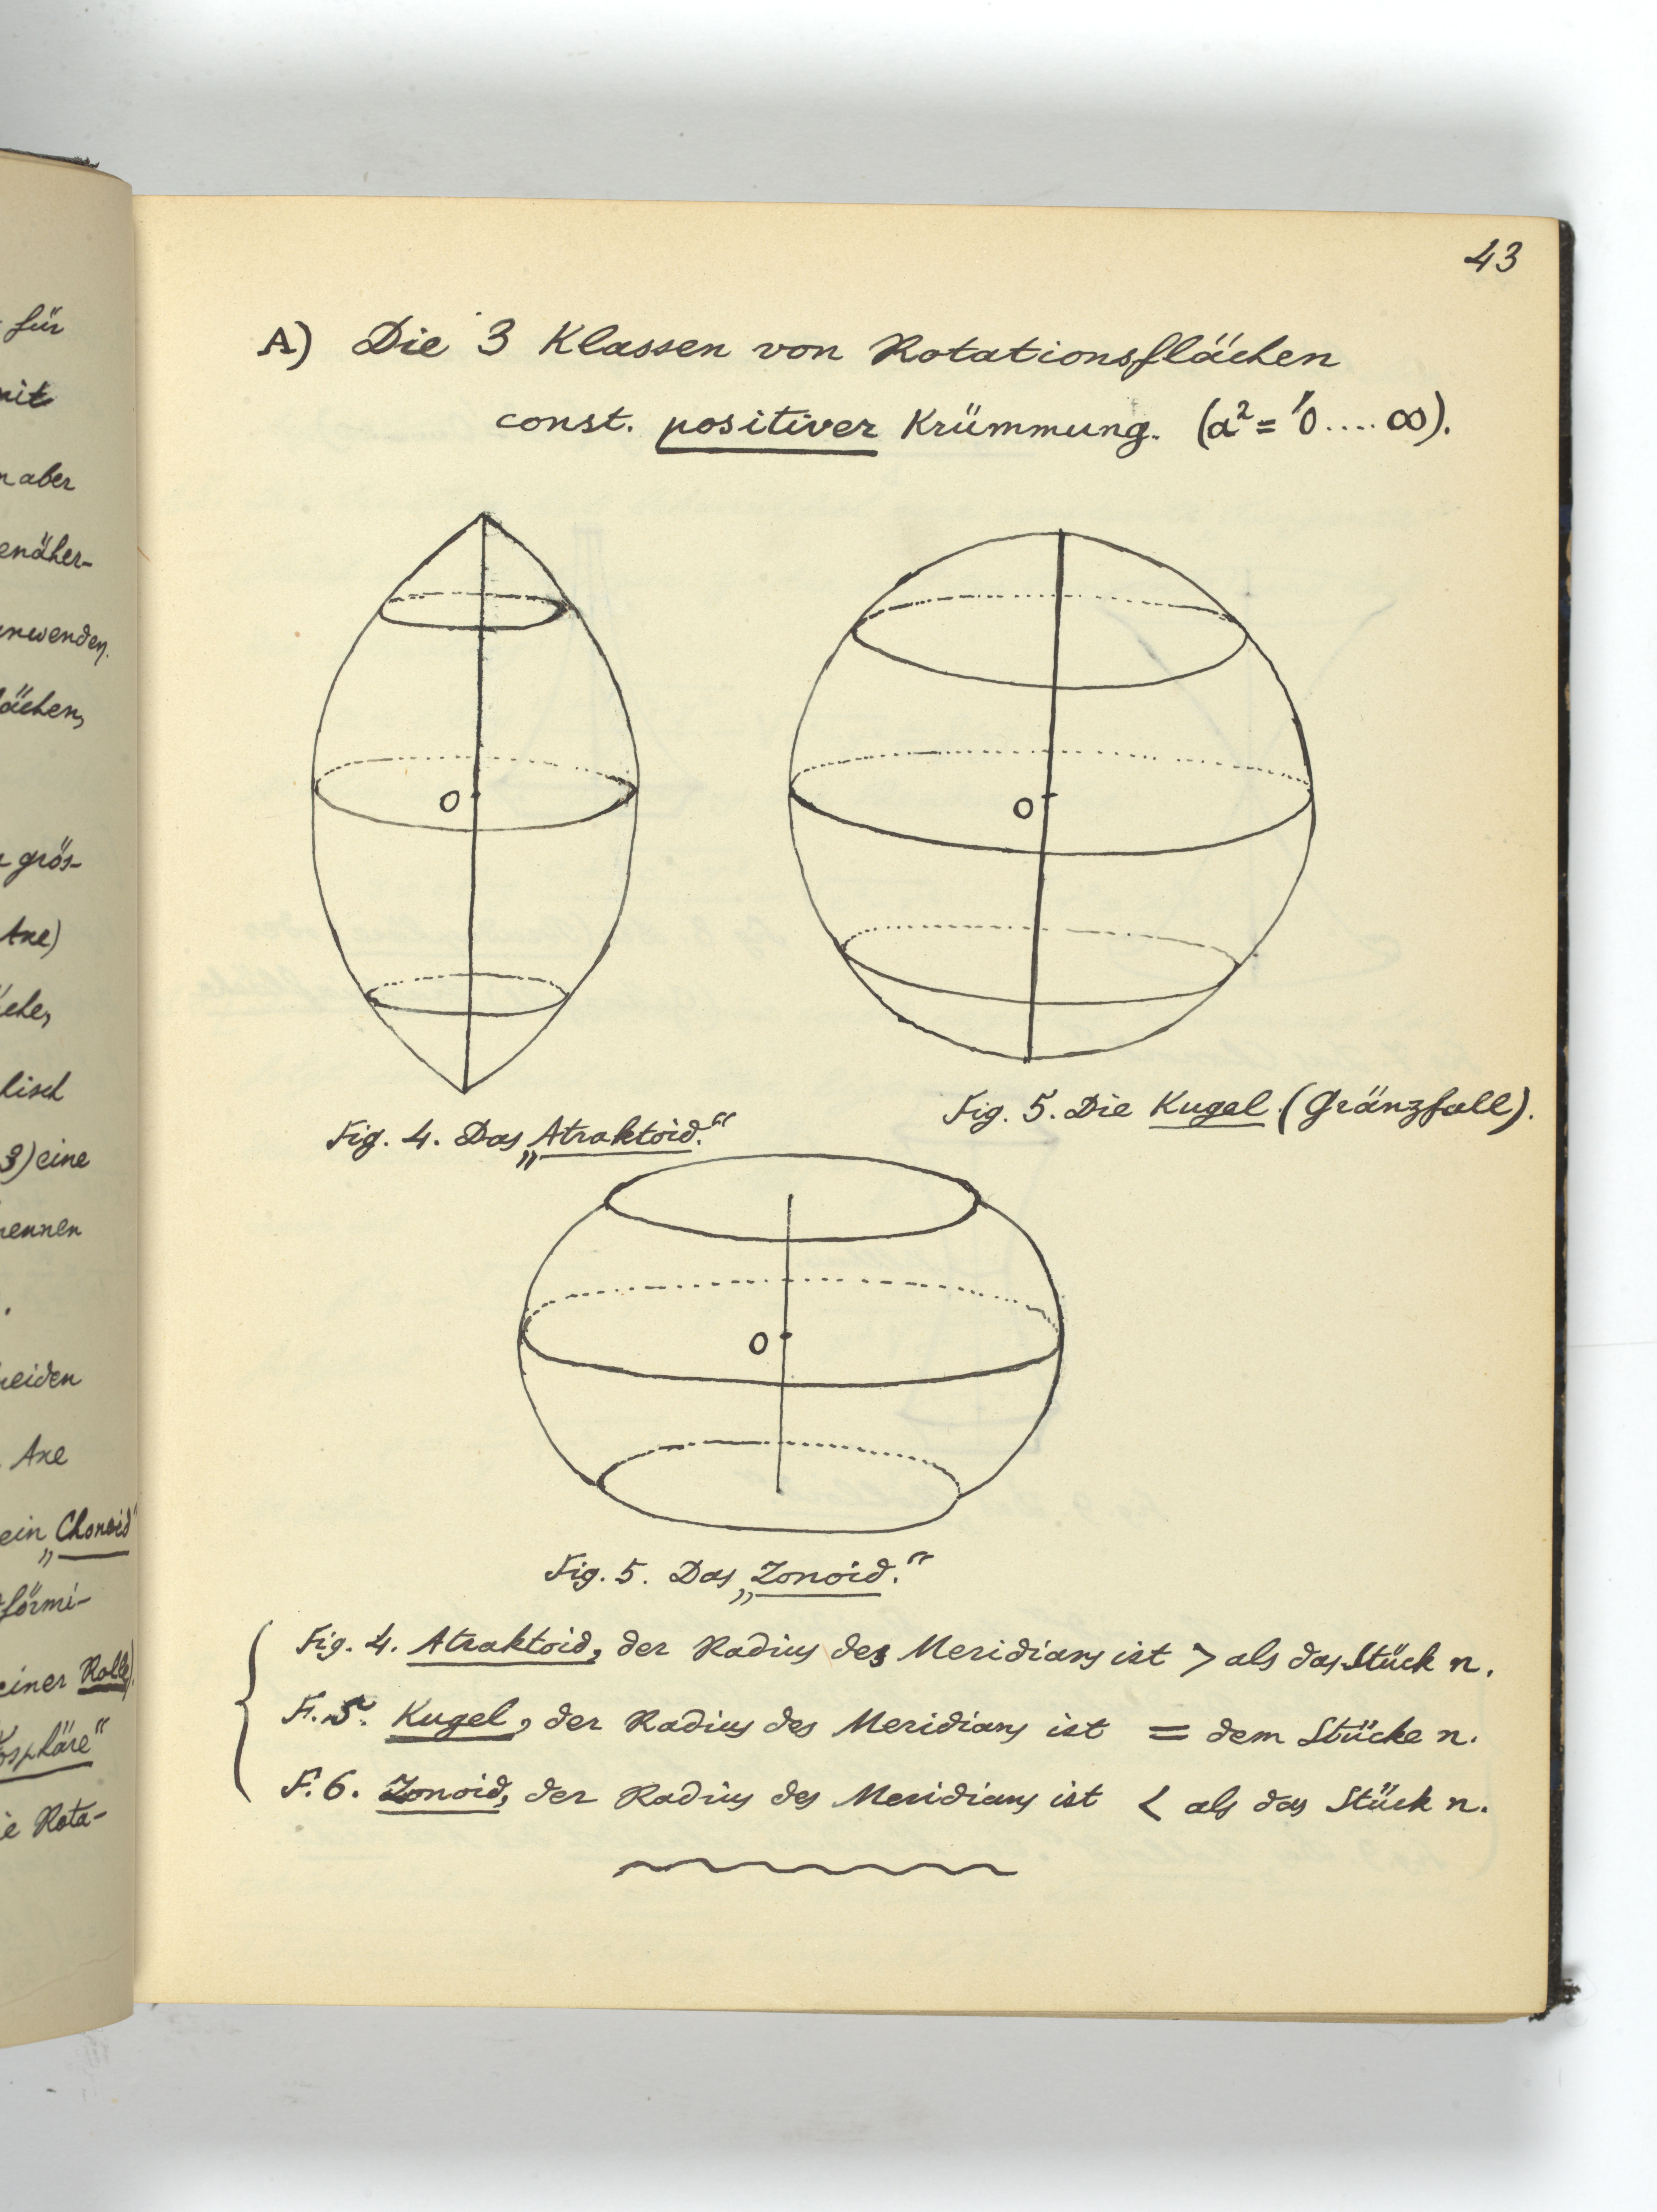 für
mit
aber
enäher-
nwenden.
ächen,
grös-
Axe)
lisch
3) eine
nennen
Axe
ein „Chonoid“
förmi-
einer Rolle)
osphäre“
ie Rota-
43
A) Die 3 Klassen von Rotationsflächen
const. positiver Krümmung. (a² = 0 .... ∞).
O
O
Fig. 4. Das „Atraktoid.“
Fig. 5. Die Kugel. (Gränzfall).
O
Fig. 5. Das „Zonoid.“
Fig. 4. Atraktoid, der Radius des Meridians ist > als das Stück n.
F. 5. Kugel, der Radius des Meridians ist = dem Stücke n.
F. 6. Zonoid, der Radius des Meridians ist < als das Stück n.